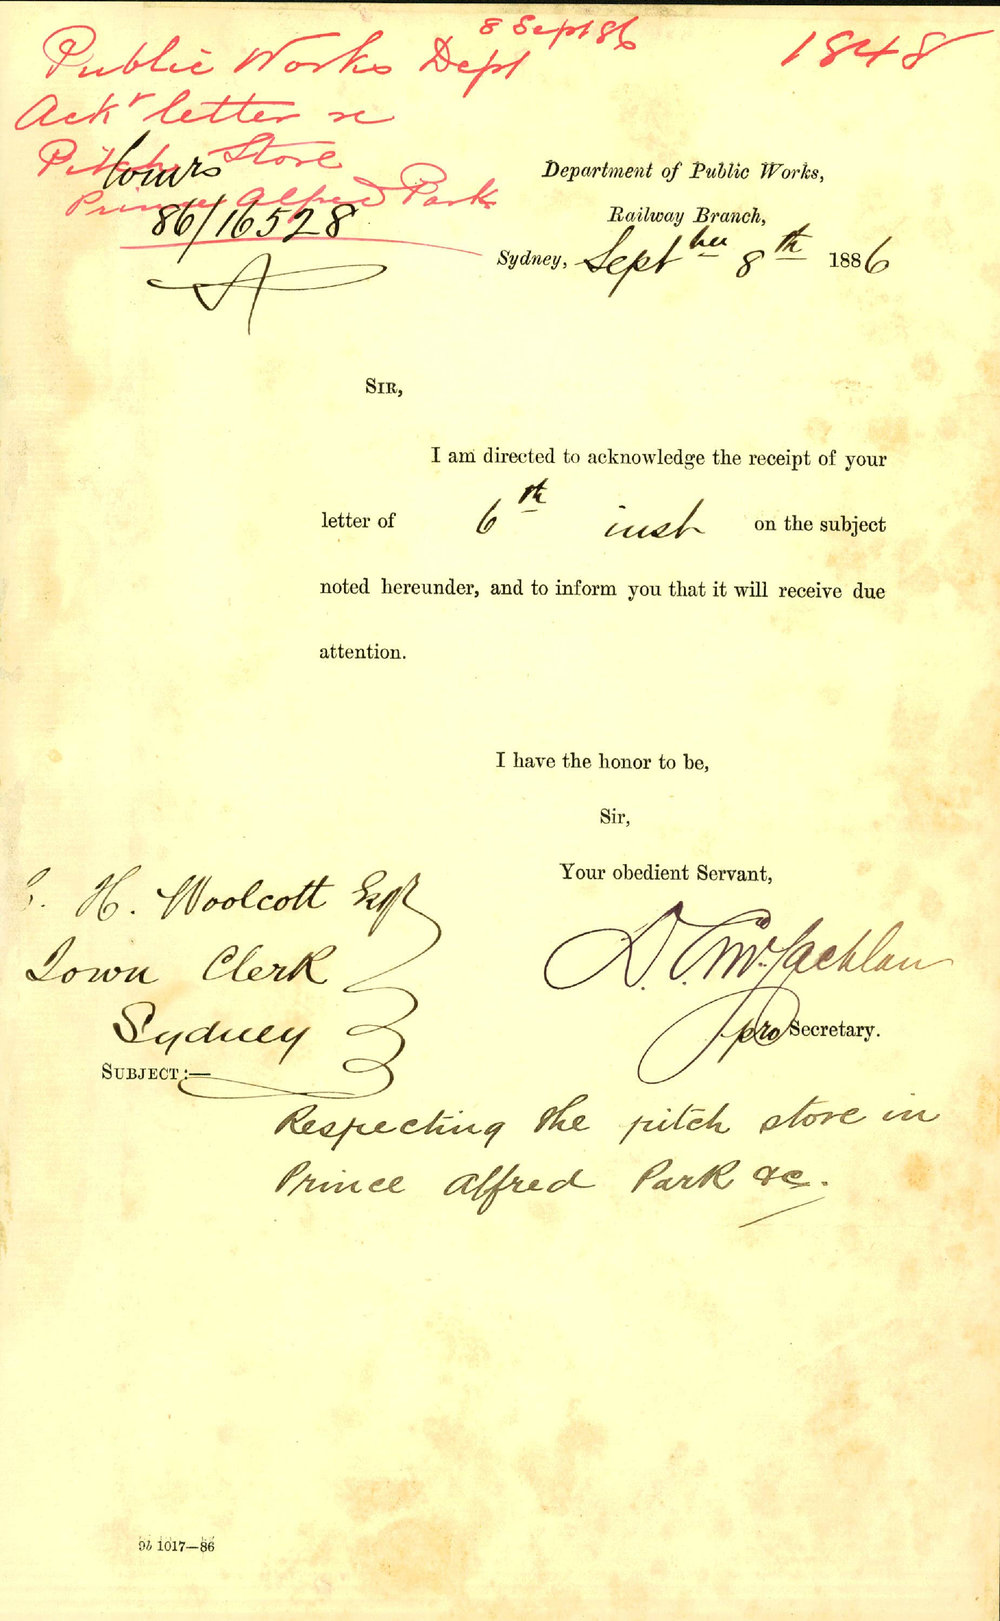 8 Sept 86
1848
Public Works Dept
Ackr letter re
Pitch Store
Prince Alfred Park
86/16528
Department of Public Works,
Railway Branch,
Sydney, Septber 8th 1886
SIR,
I am directed to acknowledge the receipt of your
letter of 6th inst on the subject
noted hereunder, and to inform you that it will receive due
attention.
I have the honor to be,
Sir,
Your obedient Servant,
D. C. McLachlan
pro Secretary.
H. Woolcott Esqr
Town Clerk
Sydney
SUBJECT:—
Respecting the pitch store in
Prince Alfred Park &c.
9b 1017—86